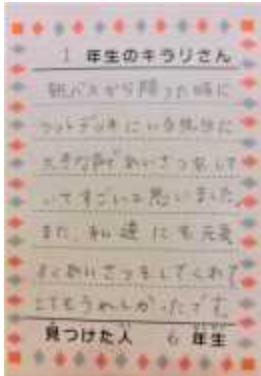 1 年生のキラリさん
朝バスから降りた時に
ウッドデッキにいる先生に
大きな声であいさつをして
いてすごいと思いました。
また、私達にも元気
よくあいさつをしてくれて
とてもうれしかったです。
見つけた人 6 年生